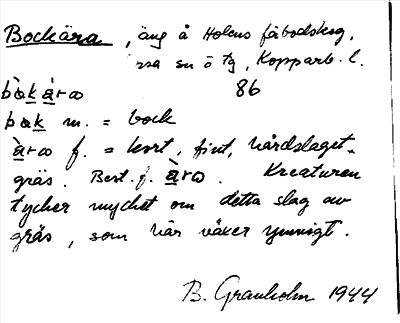 Bockära, äng å Holens fäbodskog,
sn ö tg, Kopparb. l.
86
bòkàrω
bok m. = bock
àrω f. = kort, fint, hårdslaget
gräs. Best. f. àrω. Kreaturen
tycker mycket om detta slag av
gräs, som här växer ymnigt.
B. Granholm 1944